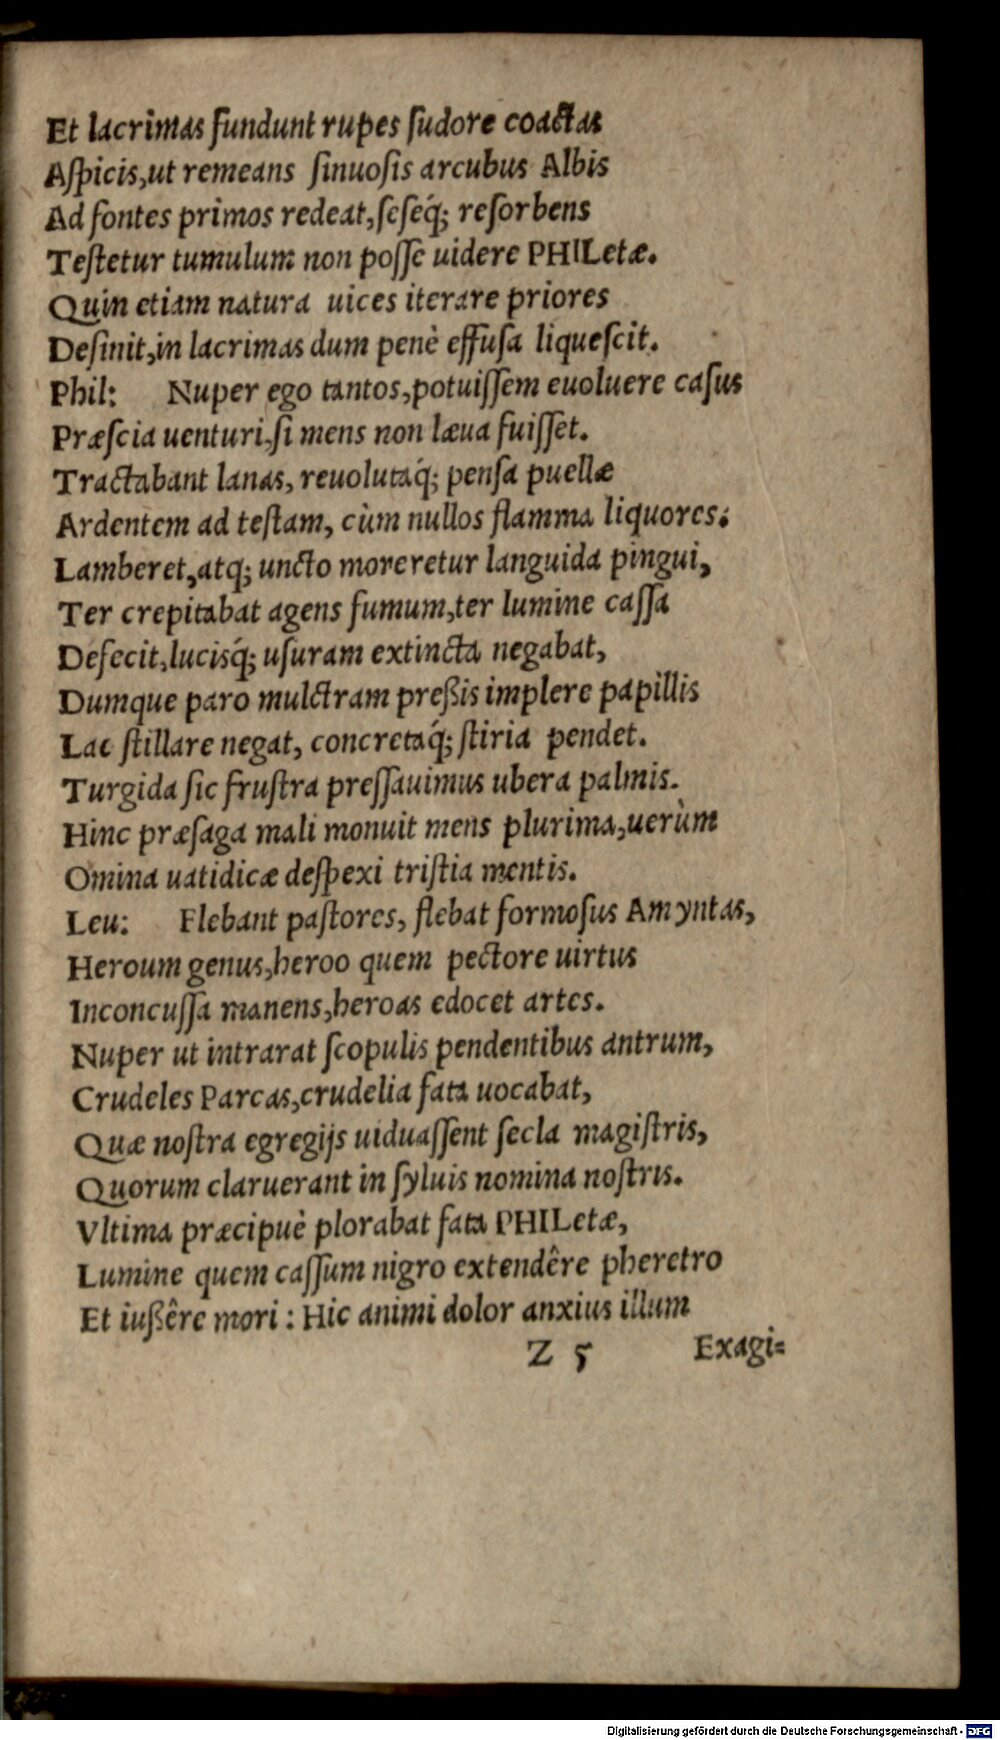 Et lacrimas fundunt rupes ſudore coactas
Aſpicis,ut remeans ſinuoſis arcubus Albis
Ad fontes primos redeat,ſeſeq́; reſorbens
Teſtetur tumulum non poſſe uidere PHILetæ.
Quin etiam natura uices iterare priores
Deſinit,in lacrimas dum penè effuſa liqueſcit.
Phil: Nuper ego tantos,potuiſſem euoluere caſus
Præſcia uenturi,ſi mens non læua fuiſſet.
Tractabant lanas, reuolutaq́; penſa puellæ
Ardentem ad teſtam, cùm nullos flamma liquores:
Lamberet,atq; uncto moreretur languida pingui,
Ter crepitabat agens fumum,ter lumine caſſa
Defecit,lucisq́; uſuram extincta negabat,
Dumque paro mulctram preßis implere papillis
Lac ſtillare negat, concretaq́; ſtiria pendet.
Turgida ſic fruſtra preſſauimus ubera palmis.
Hinc præſaga mali monuit mens plurima,uerùm
Omina uatidicæ deſpexi triſtia mentis.
Leu: Flebant paſtores, flebat formoſus Amyntas,
Heroum genus,heroo quem pectore uirtus
Inconcuſſa manens,heroas edocet artes.
Nuper ut intrarat ſcopulis pendentibus antrum,
Crudeles Parcas,crudelia fata uocabat,
Quæ noſtra egregijs uiduaſſent ſecla magiſtris,
Quorum claruerant in ſyluis nomina noſtris.
Vltima præcipuè plorabat fata PHILetæ,
Lumine quem caſſum nigro extendêre pheretro
Et iußêre mori : Hic animi dolor anxius illum
Z 5 Exagi=
Digitalisierung gefördert durch die Deutsche Forschungsgemeinschaft - DFG